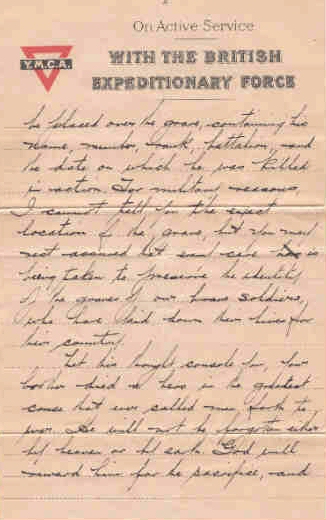 On Active Service
Y.M.C.A.
WITH THE BRITISH
EXPEDITIONARY FORCE
be placed over the grave, containing his
name, number, rank, battalion, and
the date on which he was killed
in action. For military reasons,
I cannot tell you the exact
location of the grave, but you may
rest assured that care is
being taken to preserve the identity
of the graves of our brave soldiers,
who have laid down their lives for
their country.
Let this thought console you, Your
brother died a hero in the greatest
cause that ever called men forth to
war. He will not be forgotten either
by heaven or by earth. God will
reward him for his sacrifice, and